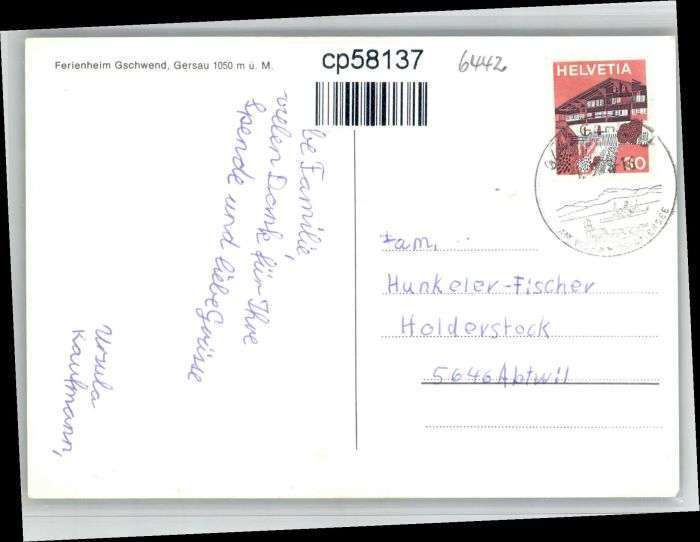 Ferienheim Gschwend, Gersau 1050 m ü. M.
cp58137
6442
HELVETIA
be Familie
vielen Dank für Ihre
Spende und liebe Grüsse
Ursula
Kaufmann,
Fam.
Hunkeler-Fischer
Holderstock
5646 Abtwil